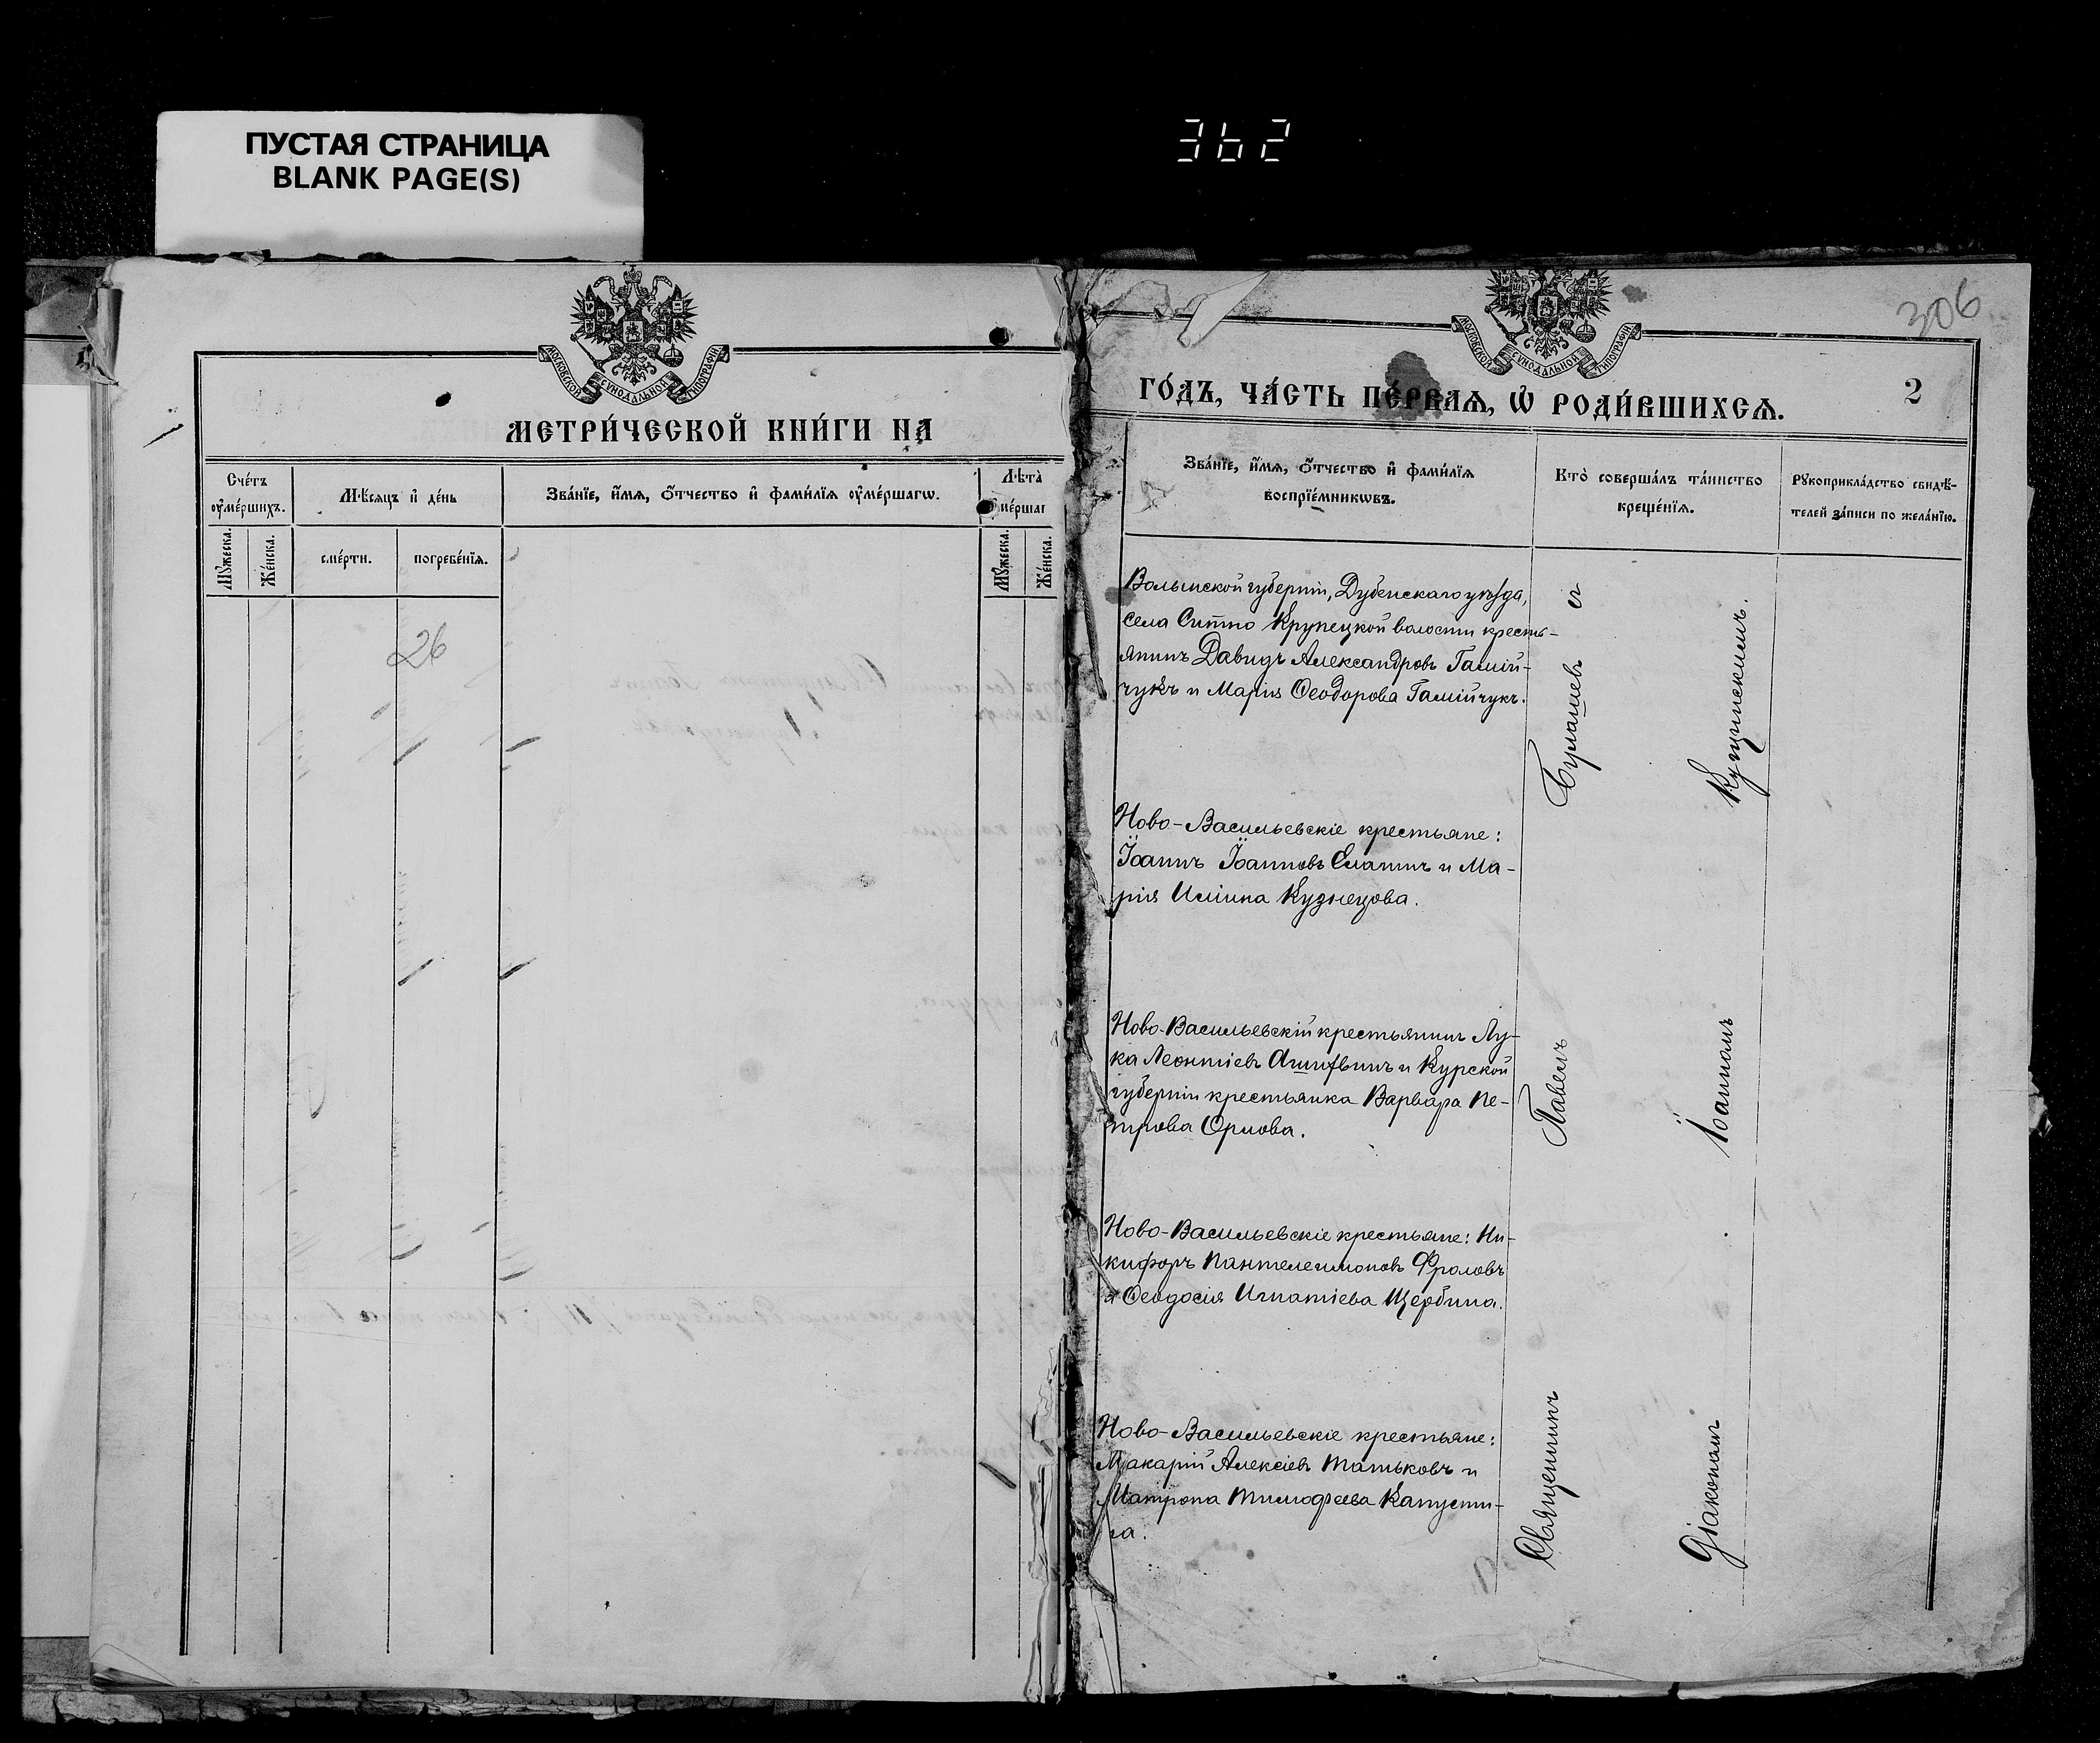 ПУСТАЯ СТРАНИЦА
BLANK PAGE(S)
362
МОСКОВСКОЙ СѴНОДАЛЬНОЙ ТИПОГРАФІИ
МЕТРИ́ЧЕСКОЙ КНИ́ГИ НА
Сче́тъ ᲂу҆ме́ршихъ.
Мѣ́сяцъ и҆ де́нь
Зва́нїе, и҆́мѧ, ѻ҆́тчество и҆ фами́лїѧ ᲂу҆ме́ршагѡ.
Лѣта̀
Мꙋ́жеска.
Же́нска.
сме́рти.
погребе́нїѧ.
Мꙋ́жеска.
Же́нска.
26
306
МОСКОВСКОЙ СѴНОДАЛЬНОЙ ТИПОГРАФІИ
ГО́ДЪ, ЧА́СТЬ ПЕ́РВАѦ, Ѡ҆ РОДИ́ВШИХСѦ.
2
Зва́нїе, и҆́мѧ, ѻ҆́тчество и҆ фами́лїѧ
воспрїе́мникѡвъ.
Кто̀ соверша́лъ та́инство
креще́нїѧ.
Рꙋкоприкла́дство свидѣ́-
телей за́писи по жела́нїю.
Волынской губерніи, Дубенскаго уѣзда,
села Ситно Крупецкой волости кресть-
янинъ Давидъ Александровъ Гамій-
чукъ и Марія Ѳеодорова Гамійчукъ.
Ново-Васильевскіе крестьяне:
Іоаннъ Іоанновъ Елатинъ и Ма-
рія Иліина Кузнецова.
Ново-Васильевскій крестьянинъ Лу-
ка Леонтіевъ и Курской
губерніи крестьянка Варвара Пе-
трова Орлова.
Ново-Васильевскіе крестьяне: Ни-
кифоръ Пантелеимоновъ Фроловъ
и Ѳеодосія Игнатіева Щербина.
Ново-Васильевскіе крестьяне:
Макарій Алексіевъ Татьковъ и
Матрона Тимофеева Капусти-
на.
Священникъ Павелъ Булашевъ съ
Діакономъ Іоанномъ Кущинскимъ.